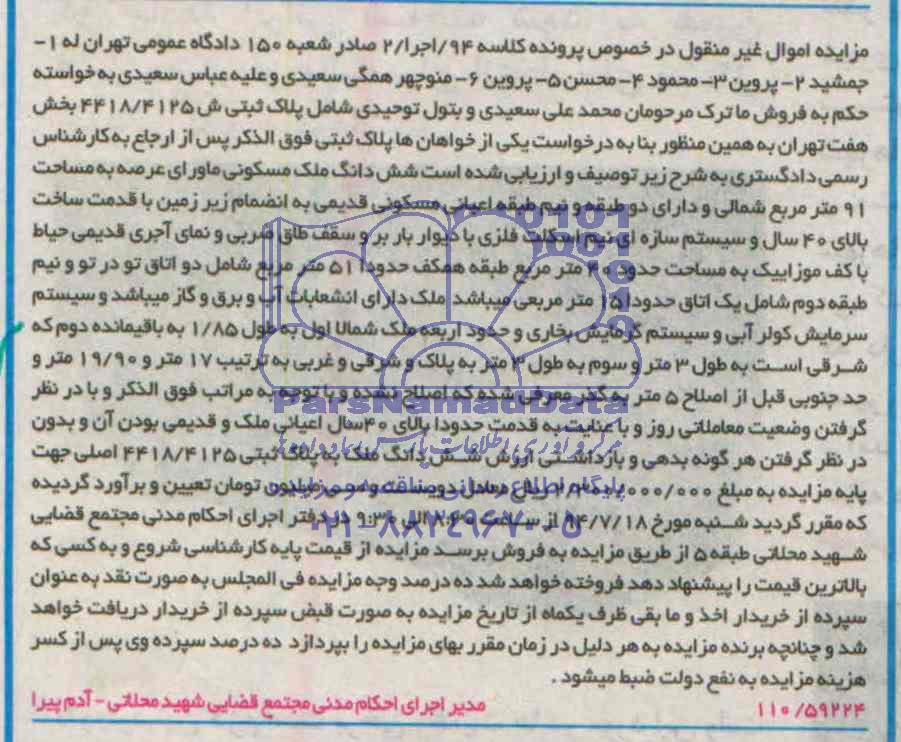 مزایده اموال غیر منقول در خصوص پرونده کلاسه ۹۴/اجرا/۲ صادر شعبه ۱۵۰ دادگاه عمومی تهران له ۱-
جمشید ۲- پروین ۳- محمود ۴- محسن ۵- پروین ۶- منوچهر همگی سعیدی و علیه عباس سعیدی به خواسته
حکم به فروش ما ترک مرحومان محمد علی سعیدی و بتول توحیدی شامل پلاک ثبتی ش ۴۴۱۸/۴۱۲۵ بخش
هفت تهران به همین منظور بنا به درخواست یکی از خواهان ها پلاک ثبتی فوق الذکر پس از ارجاع به کارشناس
رسمی دادگستری به شرح زیر توصیف و ارزیابی شده است شش دانگ ملک مسکونی ماورای عرصه به مساحت
۹۱ متر مربع شمالی و دارای دو طبقه و نیم طبقه اعیانی مسکونی قدیمی به انضمام زیر زمین با قدمت ساخت
بالای ۴۰ سال و سیستم سازه ای نیم اسکلت فلزی با دیوار بار بر و سقف طاق ضربی و نمای آجری قدیمی حیاط
با کف موزاییک به مساحت حدود ۴۰ متر مربع طبقه همکف حدودا ۵۱ متر مربع شامل دو اتاق تو در تو و نیم
طبقه دوم شامل یک اتاق حدودا ۱۵ متر مربعی میباشد ملک دارای انشعابات آب و برق و گاز میباشد و سیستم
سرمایش کولر آبی و سیستم گرمایش بخاری و حدود اربعه ملک شمالا اول به طول ۱/۸۵ به باقیمانده دوم که
شرقی است به طول ۳ متر و سوم به طول ۳ متر به پلاک و شرقی و غربی به ترتیب ۱۷ متر و ۱۹/۹۰ متر و
حد جنوبی قبل از اصلاح ۵ متر به گذر معرفی شده که اصلاح نشده و با توجه به مراتب فوق الذکر و با در نظر
گرفتن وضعیت معاملاتی روز و با عنایت به قدمت حدودا بالای ۴۰سال اعیانی ملک و قدیمی بودن آن و بدون
در نظر گرفتن هر گونه بدهی و بازداشتی ارزش شش دانگ ملک به پلاک ثبتی ۴۴۱۸/۴۱۲۵ اصلی جهت
پایه مزایده به مبلغ ۰۰۰/۰۰۰ ریال معادل دویست و سی میلیون تومان تعیین و برآورد گردیده
که مقرر گردید شنبه مورخ ۹۴/۷/۱۸ از ساعت ۸:۳۰ الی ۹:۳۰ در دفتر اجرای احکام مدنی مجتمع قضایی
شهید محلاتی طبقه ۵ از طریق مزایده به فروش برسد مزایده از قیمت پایه کارشناسی شروع و به کسی که
بالاترین قیمت را پیشنهاد دهد فروخته خواهد شد ده درصد وجه مزایده فی المجلس به صورت نقد به عنوان
سپرده از خریدار اخذ و ما بقی ظرف یکماه از تاریخ مزایده به صورت قبض سپرده از خریدار دریافت خواهد
شد و چنانچه برنده مزایده به هر دلیل در زمان مقرر بهای مزایده را بپردازد ده درصد سپرده وی پس از کسر
هزینه مزایده به نفع دولت ضبط میشود .
۱۱۰/۵۹۲۲۴ مدیر اجرای احکام مدنی مجتمع قضایی شهید محلاتی - آدم پیرا
ParsNamadData
پایگاه اطلاع رسانی مناقصه و مزایده
۰۲۱-۸۸۳۴۹۶۷۰-۵